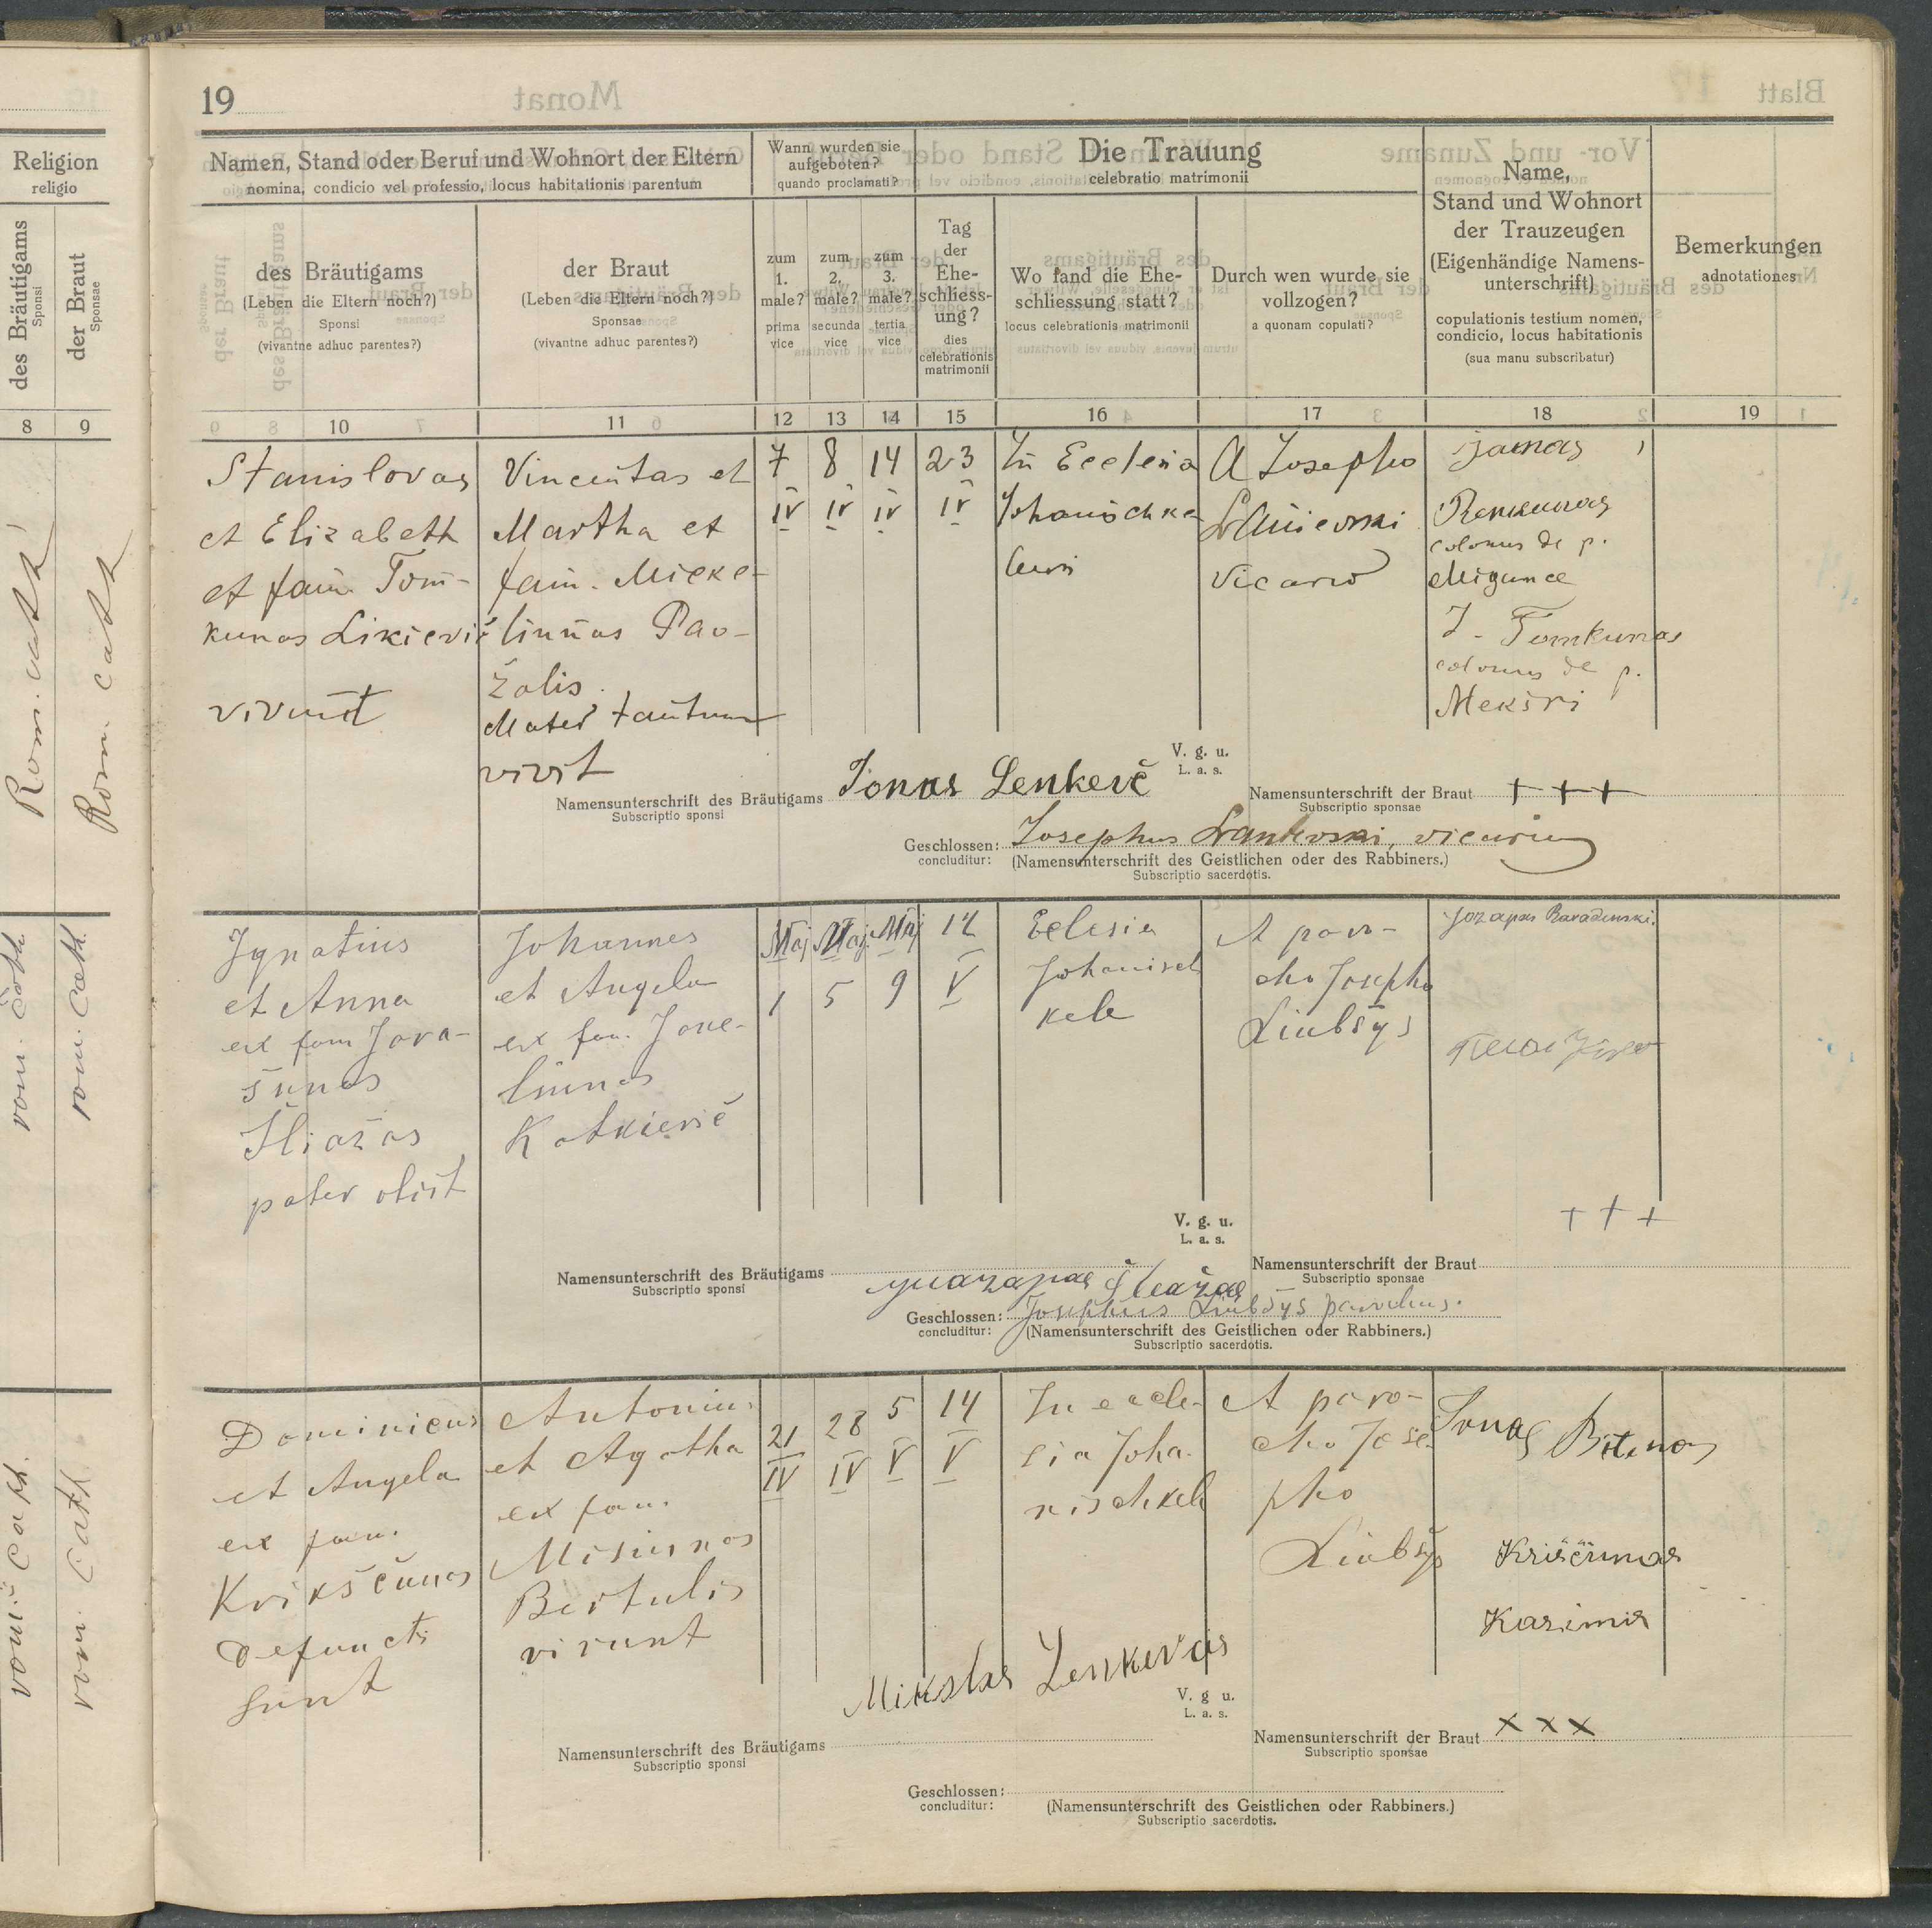 19
Religion
religio
des Bräutigams
Sponsi
der Braut
Sponsae
8
9
Rom. cath
Rom. cath
rom. cath.
rom. cath.
rom. cath.
rom. cath
Namen, Stand oder Beruf und Wohnort der Eltern
nomina, condicio vel professio, locus habitationis parentum
Wann wurden sie
aufgeboten?
quando proclamati?
Die Trauung
celebratio matrimonii
Name,
Stand und Wohnort
der Trauzeugen
(Eigenhändige Namens-
unterschrift)
copulationis testium nomen,
condicio, locus habitationis
(sua manu subscribatur)
Bemerkungen
adnotationes
des Bräutigams
(Leben die Eltern noch?)
Sponsi
(vivantne adhuc parentes?)
der Braut
(Leben die Eltern noch?)
Sponsae
(vivantne adhuc parentes?)
zum
1.
male?
prima
vice
zum
2.
male?
secunda
vice
zum
3.
male?
tertia
vice
Tag
der
Ehe-
schliess-
ung?
dies
celebrationis
matrimonii
Wo fand die Ehe-
schliessung statt?
locus celebrationis matrimonii
Durch wen wurde sie
vollzogen?
a quonam copulati?
10 11 12 13 14 15 16 17 18 19
Stanislovas
et Elizabeth
et fam. Tom-
kunas Likievič
vivunt
Vincentas et
Martha et
fam. Mieke-
linnas Pav-
žolis.
Mater tantum
vivit
7
IV
8
IV
14
IV
23
IV
In Ecclesia
Johanischke
A Josepho
Vicario
Jonas
colonus de p.
J. Tomkunas
colonus de p.
Mekšri
Namensunterschrift des Bräutigams Jonas Lenkevč
Subscriptio sponsi
V. g. u.
L. a. s.
Namensunterschrift der Braut +++
Subscriptio sponsae
Geschlossen: Josephus vicarius
concluditur: (Namensunterschrift des Geistlichen oder des Rabbiners.)
Subscriptio sacerdotis.
Ignatius
et Anna
ex fam Jora-
šunas
Šliažas
pater obiit
Johannes
et Angela
ex fam. Jone-
linnas
Kotkievič
Maj
1
Maj
5
Maj
9
12
V
Eclesia
Johanisch
kele
A paro-
cho Josepho
Liubšys
Jozapas Baradinski.
V. g. u.
L. a. s.
Namensunterschrift des Bräutigams Šležas
Subscriptio sponsi
+++
Namensunterschrift der Braut
Subscriptio sponsae
Geschlossen: Josephus Liubšys parochus.
concluditur: (Namensunterschrift des Geistlichen oder Rabbiners.)
Subscriptio sacerdotis.
Dominicus
et Angela
ex fam.
Krikščunas
defuncti
sunt
Antonius
et Agatha
ex fam.
Misiunas
Bertulis
vivunt
21
IV
28
IV
5
V
14
V
In eccle-
sia Joha-
nischkele
A paro-
cho Jose-
pho
Liubšys
Jonas Bitinas
Kriščiunas
Kazimir
Mikolas Lenkevas
V. g u.
L. a. s.
Namensunterschrift des Bräutigams
Subscriptio sponsi
Namensunterschrift der Braut xxx
Subscriptio sponsae
Geschlossen:
concluditur: (Namensunterschrift des Geistlichen oder Rabbiners.)
Subscriptio sacerdotis.